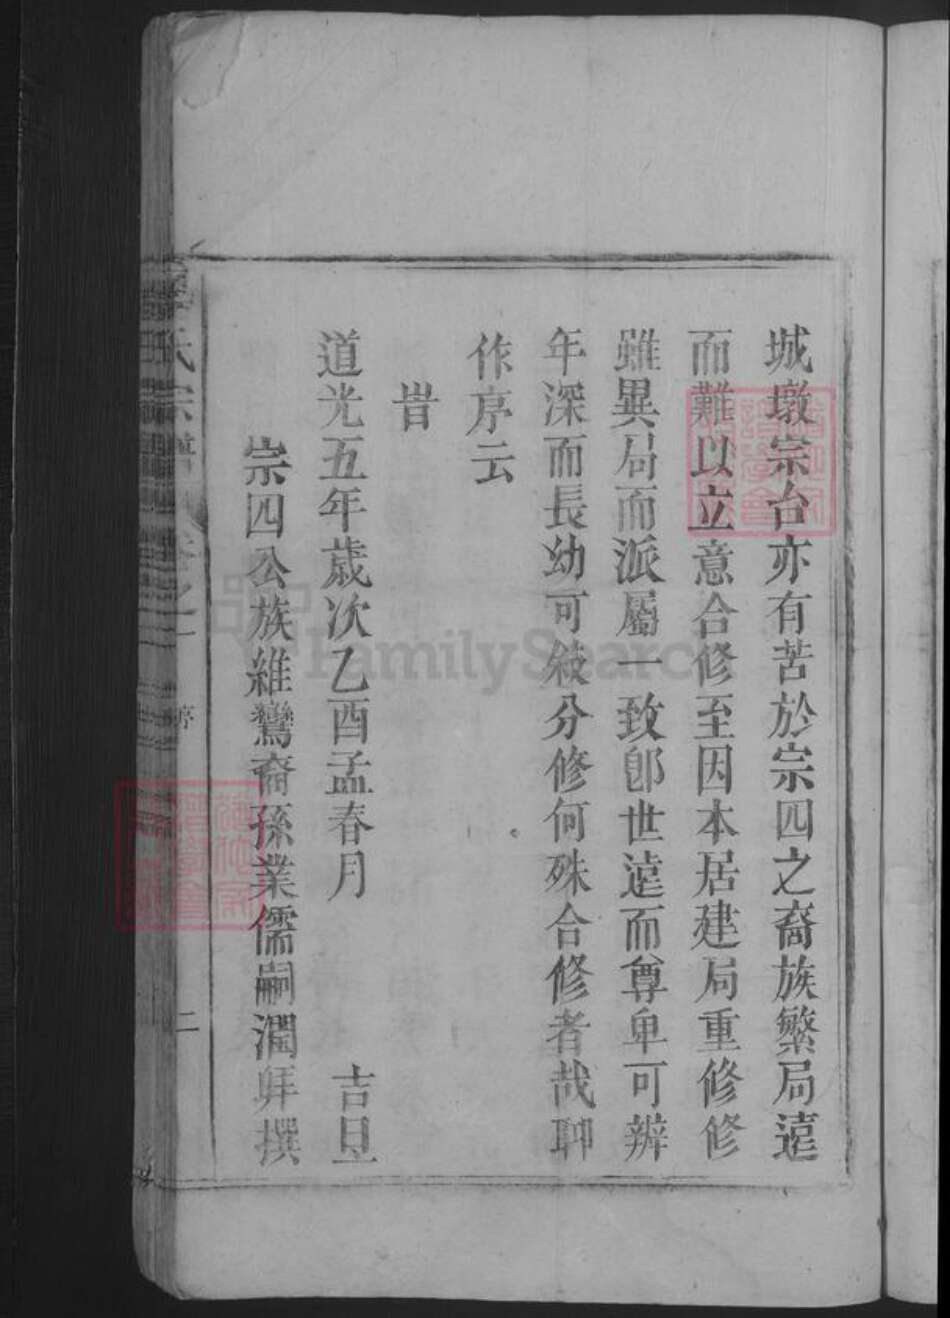 城墩宗台亦有苦於宗四之裔族繁局遠
而難以立意合修至因本居建局重修修
雖異局而派屬一致即世遠而尊卑可辨
年深而長幼可敍分修何殊合修者哉聊
作序云
旹
道光五年歲次乙酉孟春月 吉旦
宗四公族維鸞裔孫業儒嗣潤拜撰
氏宗譜 卷之一 序 二
FamilySearch